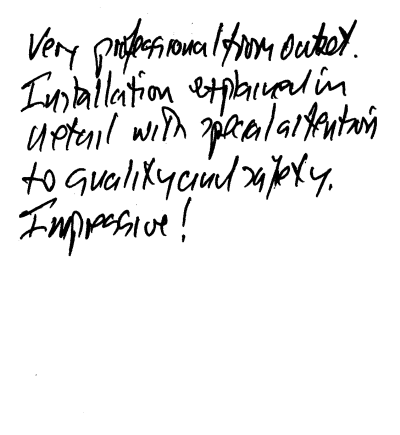 Very professional from outset.
Installation explained in
detail with special attention
to quality and safety.
Impressive!